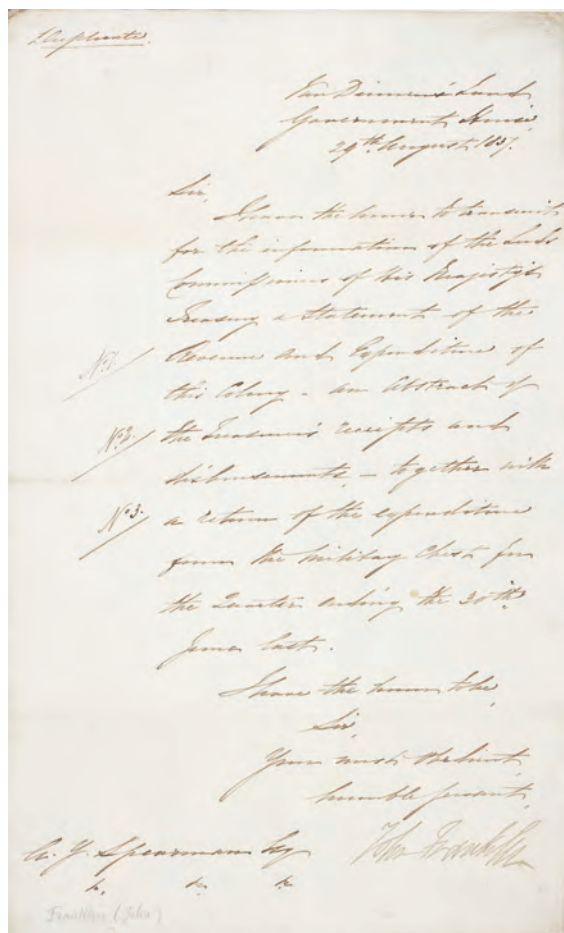 Duplicate.
Van Diemen's Land
Government House,
29th August 1837.
Sir,
I have the honor to transmit
for the information of the Lords
Commissioners of His Majesty's
Treasury a Statement of the
No. 1. Revenue and Expenditure of
this Colony – an Abstract of
No. 2. the Treasurer's receipts and
disbursements, – together with
No. 3. a return of the expenditure
from the Military Chest for
the Quarter ending the 30th
June last.
I have the honor to be,
Sir,
Your most obedient
humble servant,
John Franklin
A. Y. Spearman Esq
&c. &c. &c
Franklin (John)